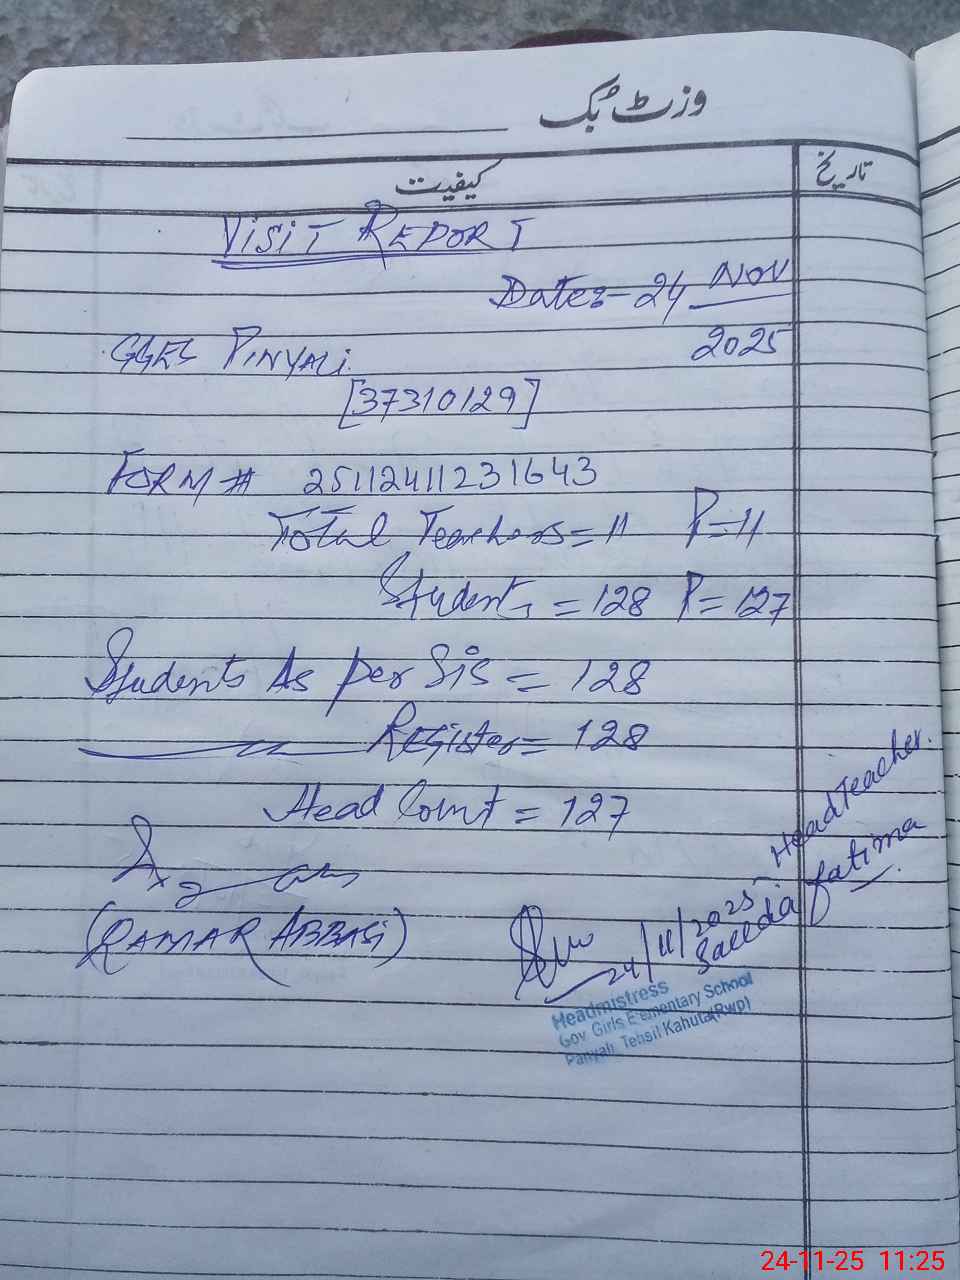 وزٹ بک
کیفیت
تاریخ
VISIT REPORT
Date:- 24 NOV
2025
GGES PINYALI
[37310129]
FORM # 25112411231643
Total Teachers = 11 P=11
Students = 128 P=127
Students As per SIS = 128
Register = 128
Head Count = 127
(QAMAR ABBASI)
24/11/2025
Head Teacher.
Saeeda fatima
Headmistress
Gov Girls Elementary School
Panyali Tehsil Kahuta(Rwp)
24-11-25 11:25